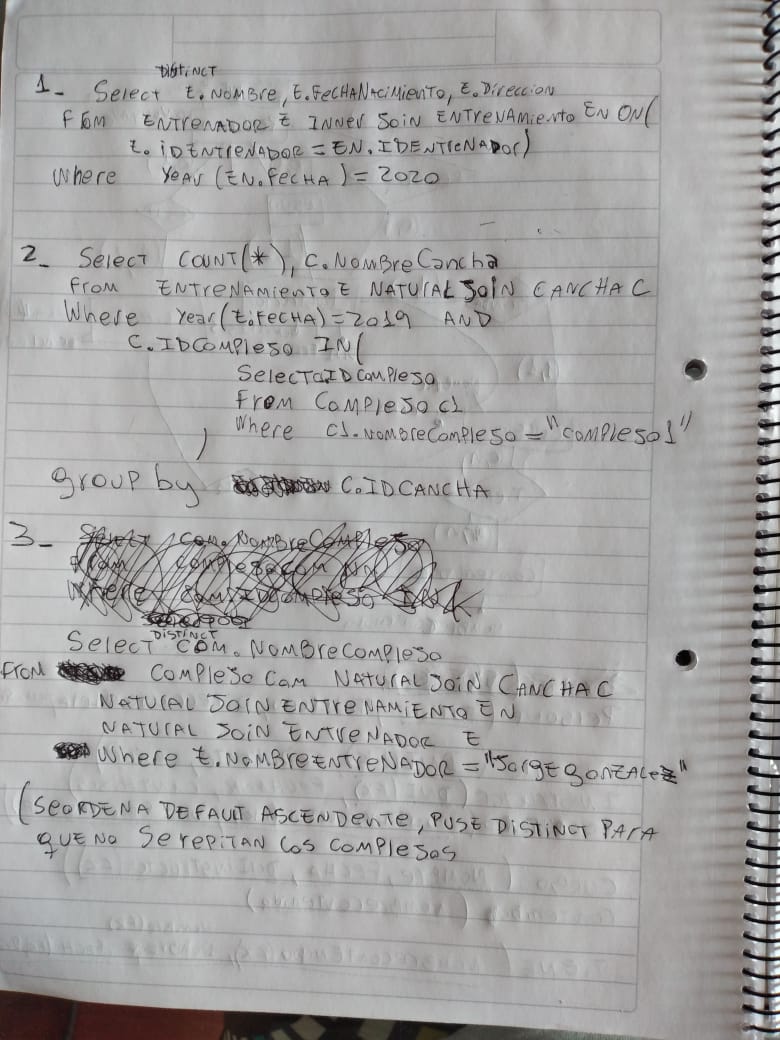 DISTINCT
1- Select E.NOMBRE, E.FECHANACIMIENTO, E.Direccion
FROM ENTRENADOR E INNER JOIN ENTRENAMIENTO EN ON(
E.IDENTRENADOR = EN.IDENTRENADOR)
Where YEAR (EN.FECHA) = 2020
2- Select COUNT(*), C.NOMBRECancha
From ENTRENAMIENTO E NATURAL JOIN CANCHA C
Where Year(E.FECHA)=2019 AND
C.IDCOMPLEJO IN(
Select IDCOMPLEJO
From COMPLEJO C1
Where C1.NOMBRECOMPLEJO = "COMPLEJO1"
)
group by C.IDCANCHA
3-
DISTINCT
Select COM.NOMBRECOMPLEJO
FROM COMPLEJO COM NATURAL JOIN CANCHA C
NATURAL JOIN ENTRENAMIENTO EN
NATURAL JOIN ENTRENADOR E
Where E.NOMBREENTRENADOR = "JORGE GONZALEZ"
(SE ORDENA DEFAULT ASCENDENTE, PUSE DISTINCT PARA
QUE NO SE REPITAN LOS COMPLEJOS